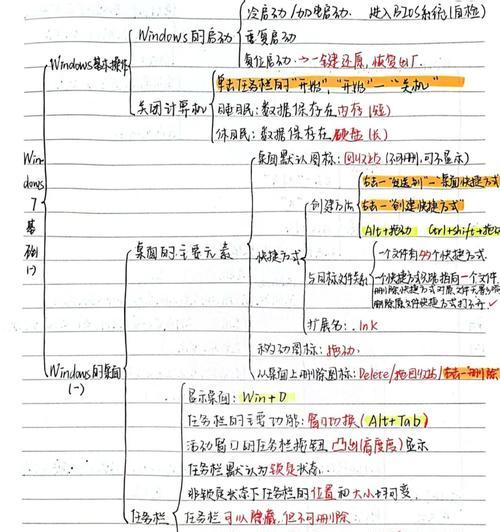 冷启动/加电启动: 进入BIOS系统(自检)
Windows的启动
重复启动
复位启动→一键还原,恢复出厂.
Windows基本操作
单击任务栏的"开始","开始"—"关机"
关闭计算机
睡眠:数据保存在内存(短)
休眠:数据保存在硬盘(长)
Windows7基础(一)
桌面默认图标:回收站(不可删,可不显示)
右击—"发送到"—"桌面快捷方式
创建方法
右击—"创建快捷方式
Alt+拖动 Ctrl+shift+拖动
桌面的主要元素
快捷方式
一个文件有多个快捷方式.
与目标文件关系
一个快捷方式只能指向一个文件
删除快捷方式对原文件无
删除原文件快捷方式打不开
扩展名: .lnk
移动图标:拖动.
从桌面上删除图标:Delete/拖回收站/右击—删除
Windows的桌面(一)
显示桌面: Win+D
任务栏的主要功能:窗口切换(Alt+Tab)
活动窗口的任务栏按钮凸出(高度)显示
任务栏默认为锁定状态.
非锁定状态下任务栏的位置和大小均可变.
任务栏
任务栏可以隐藏,但不可删除.